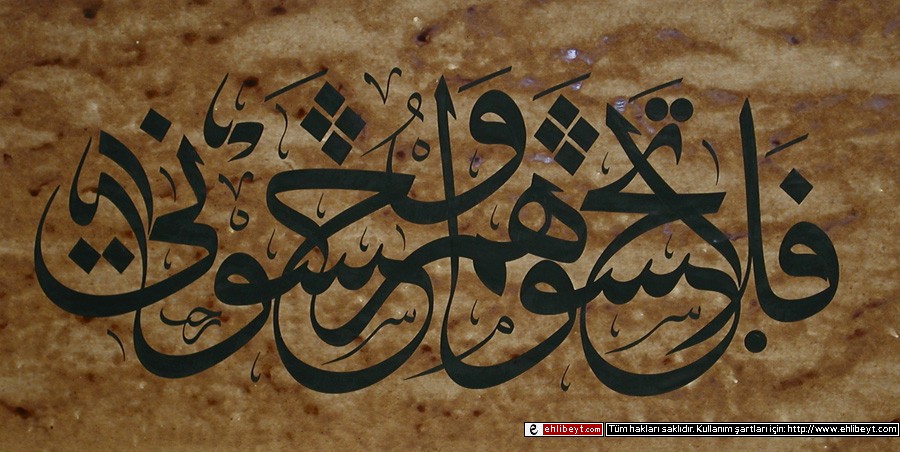 فلا تخشوهم واخشوني
ehlibeyt.com Tüm hakları saklıdır. Kullanım şartları için: http://www.ehlibeyt.com